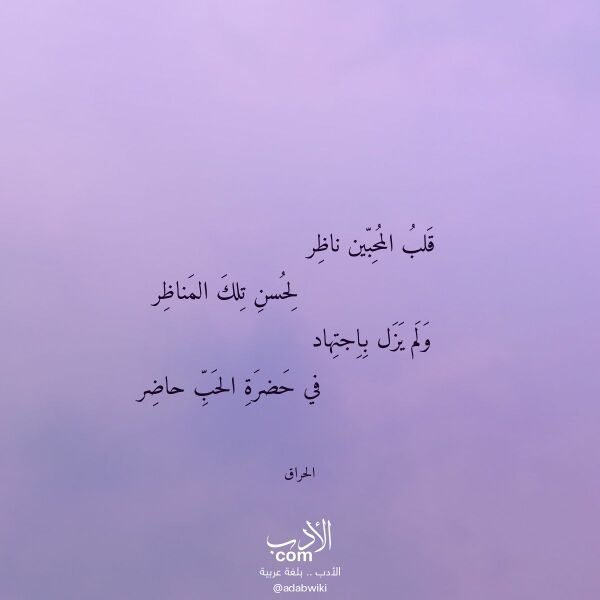 قَلبُ المُحِبّين ناظِر
لِحُسنِ تِلكَ المَناظِر
وَلَم يَزَل بِاِجتِهاد
في حَضرَةِ الحَبِّ حاضِر
الحراق
الأدب
com
الأدب .. بلغة عربية
@adabwiki